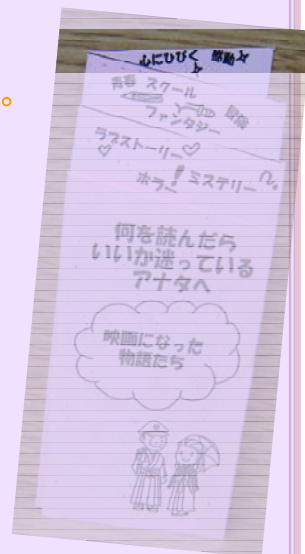 心にひびく 感動
青春 スクール
ファンタジー 冒険
ラブストーリー♡
ホラー! ミステリー?
何を読んだら
いいか迷っている
アナタへ
映画になった
物語たち